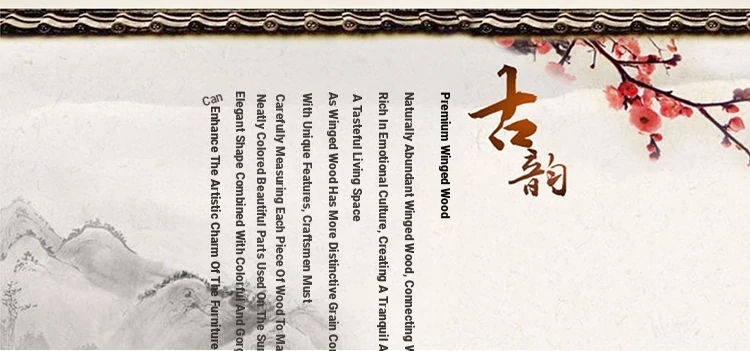 古韵
Premium Winged Wood
Naturally Abundant Winged Wood, Connecting
Rich In Emotional Culture, Creating A Tranquil
A Tasteful Living Space
As Winged Wood Has More Distinctive Grain
With Unique Features, Craftsmen Must
Carefully Measuring Each Piece Of Wood To
Neatly Colored Beautiful Parts Used On The
Elegant Shape Combined With Colorful And
Can Enhance The Artistic Charm Of The Furniture